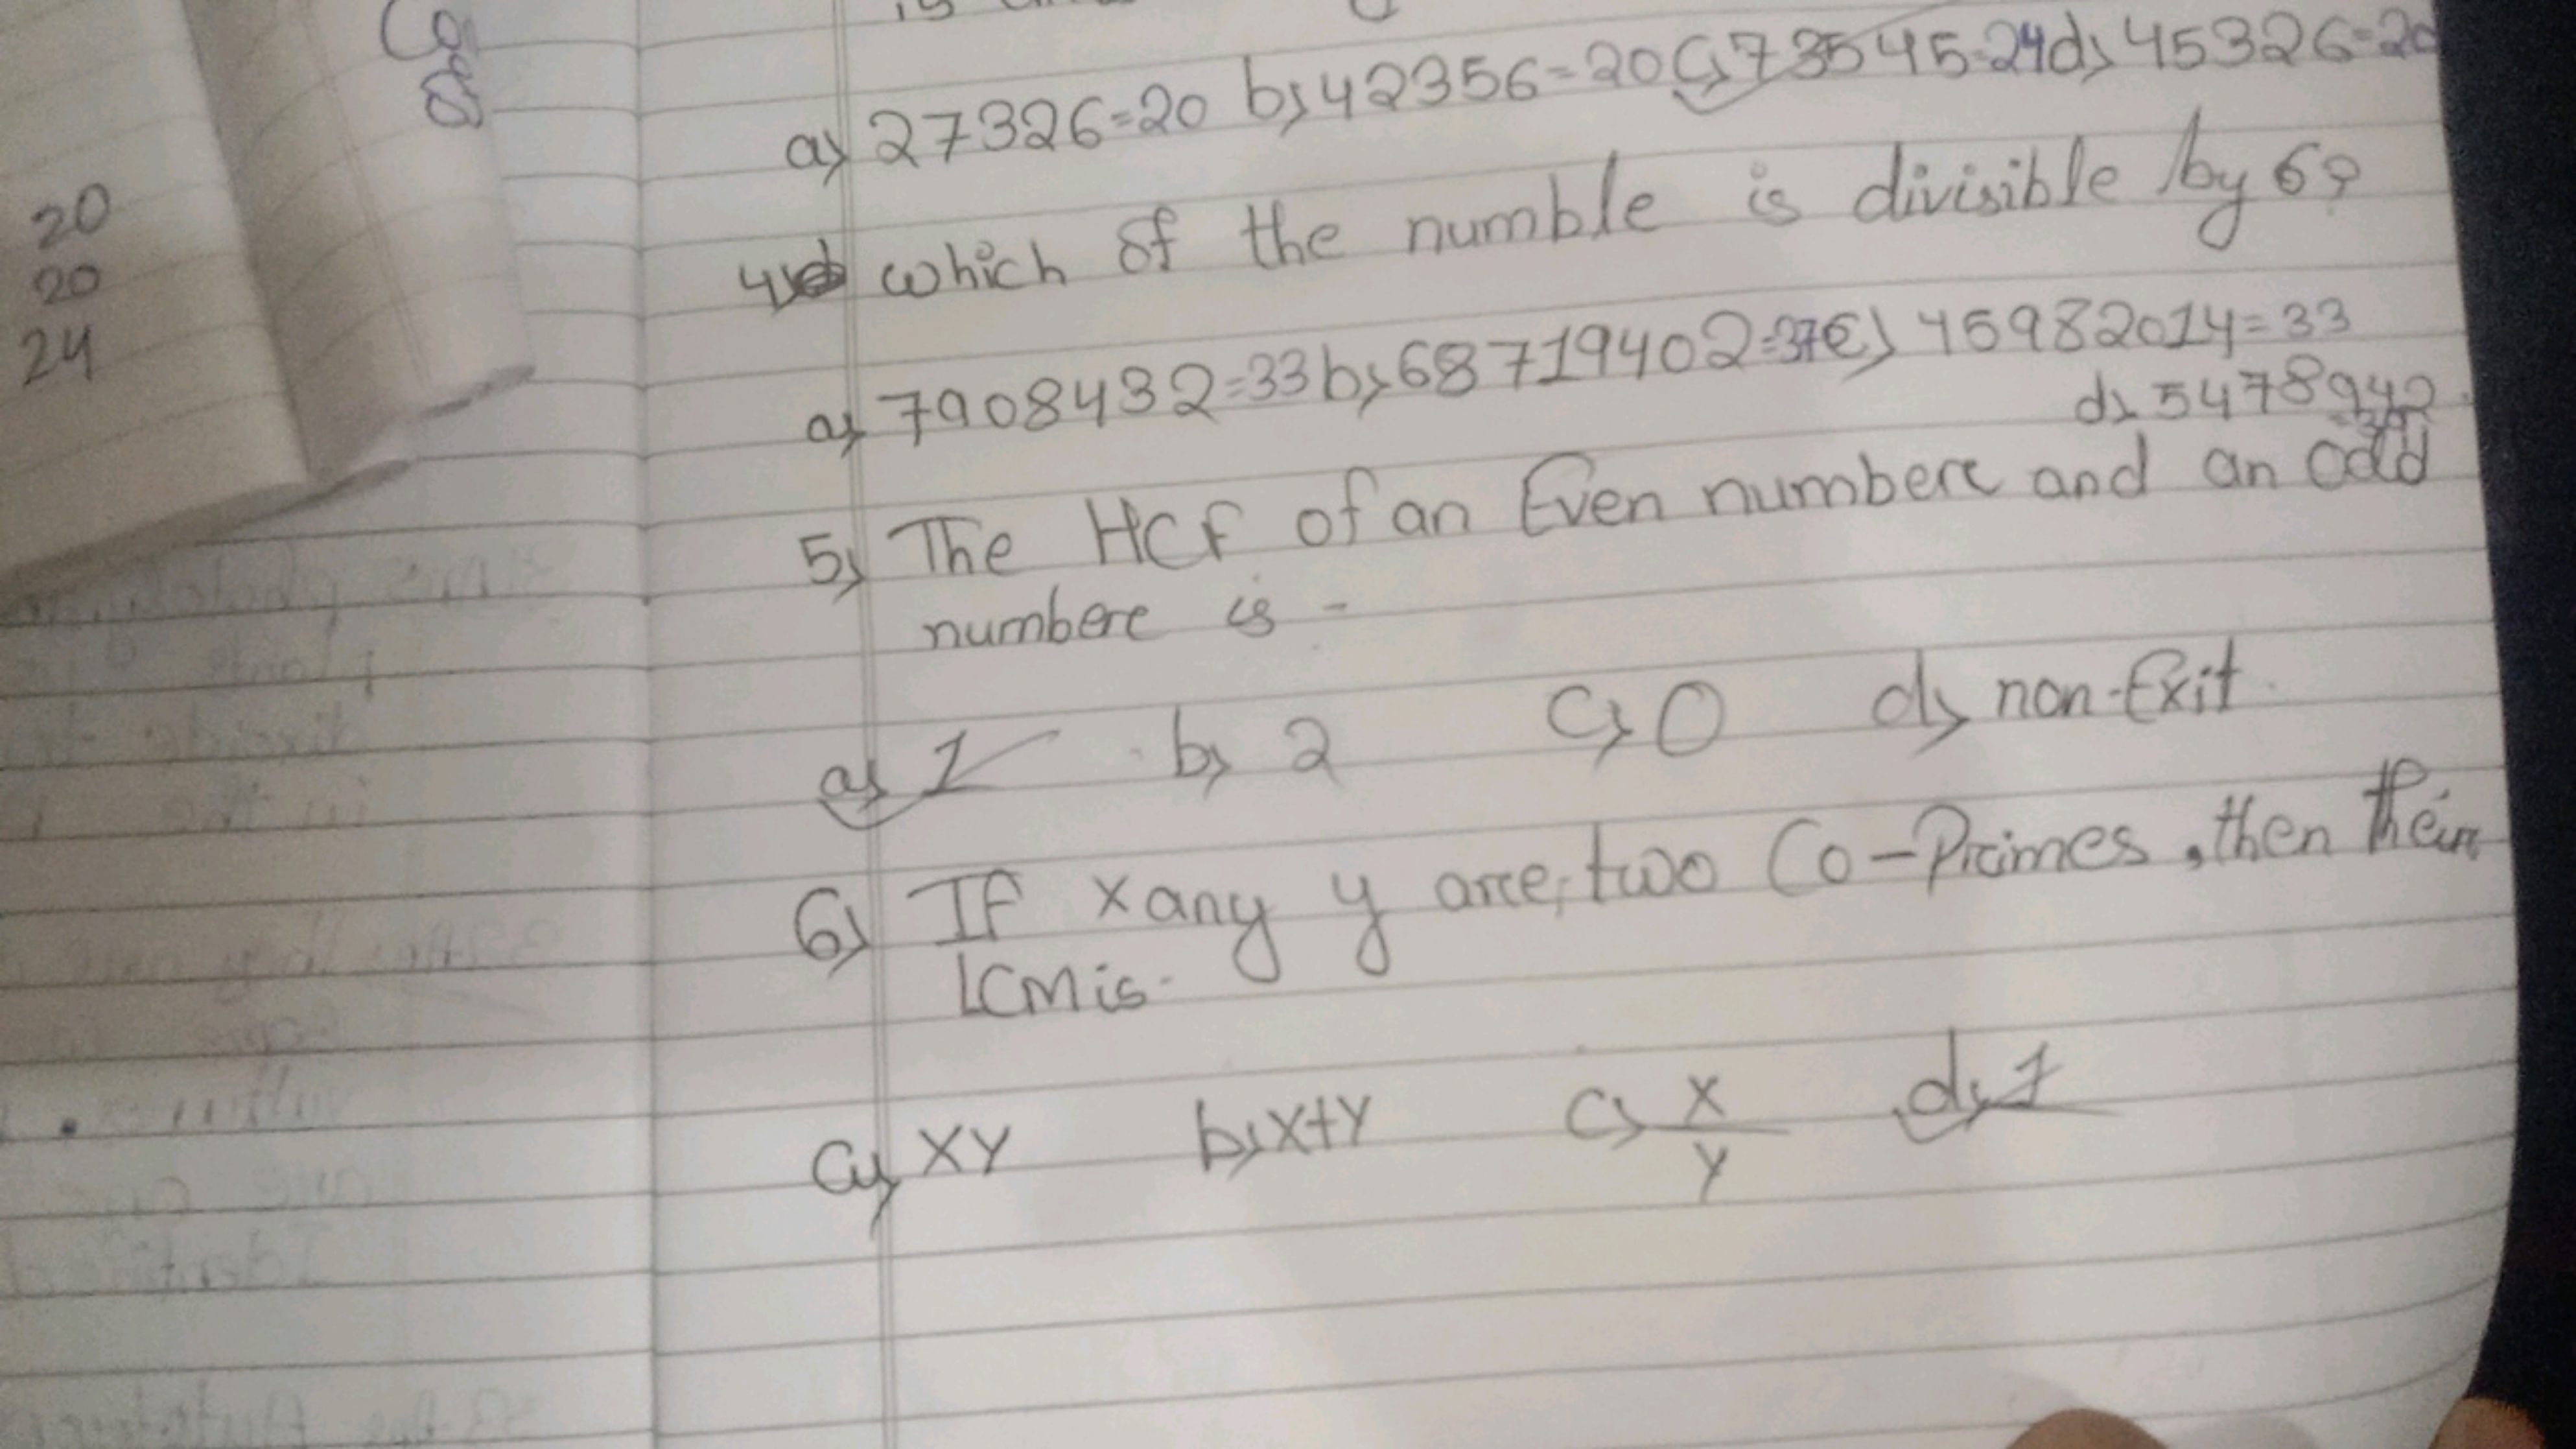 a) 27326=20 b) 42356=20 c) 73545=24 d) 45326=20
4) which of the numble is divisible by 6?
a) 7908432=33 b) 68719402=37 c) 45982014=33
d) 5478942
5) The HCF of an Even numbere and an odd
numbere is -
a) 1 b) 2 c) 0 d) non-Exit
6) If x any y are two Co-Primes, then their
LCM is.
a) XY b) X+Y c) X/Y d) 1
20
20
24